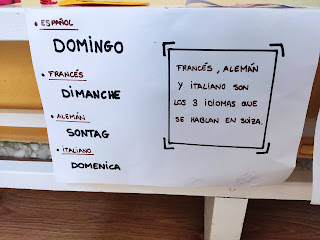 • ESPAÑOL
DOMINGO
• FRANCÉS
DIMANCHE
• ALEMÁN
SONTAG
• ITALIANO
DOMENICA
FRANCÉS, ALEMÁN
Y ITALIANO SON
LOS 3 IDIOMAS QUE
SE HABLAN EN SUIZA.